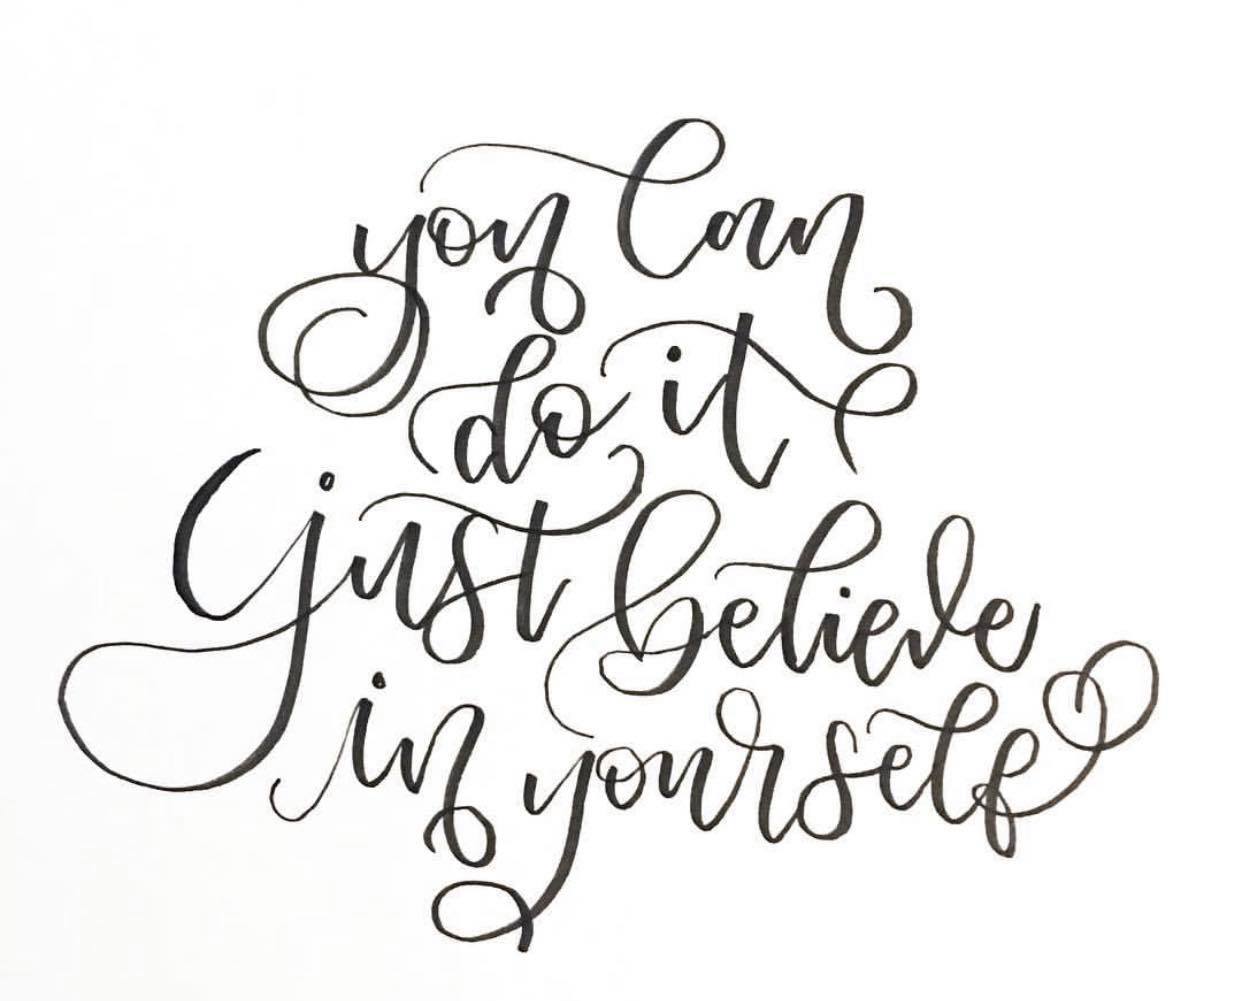 you can
do it
just believe
in yourself